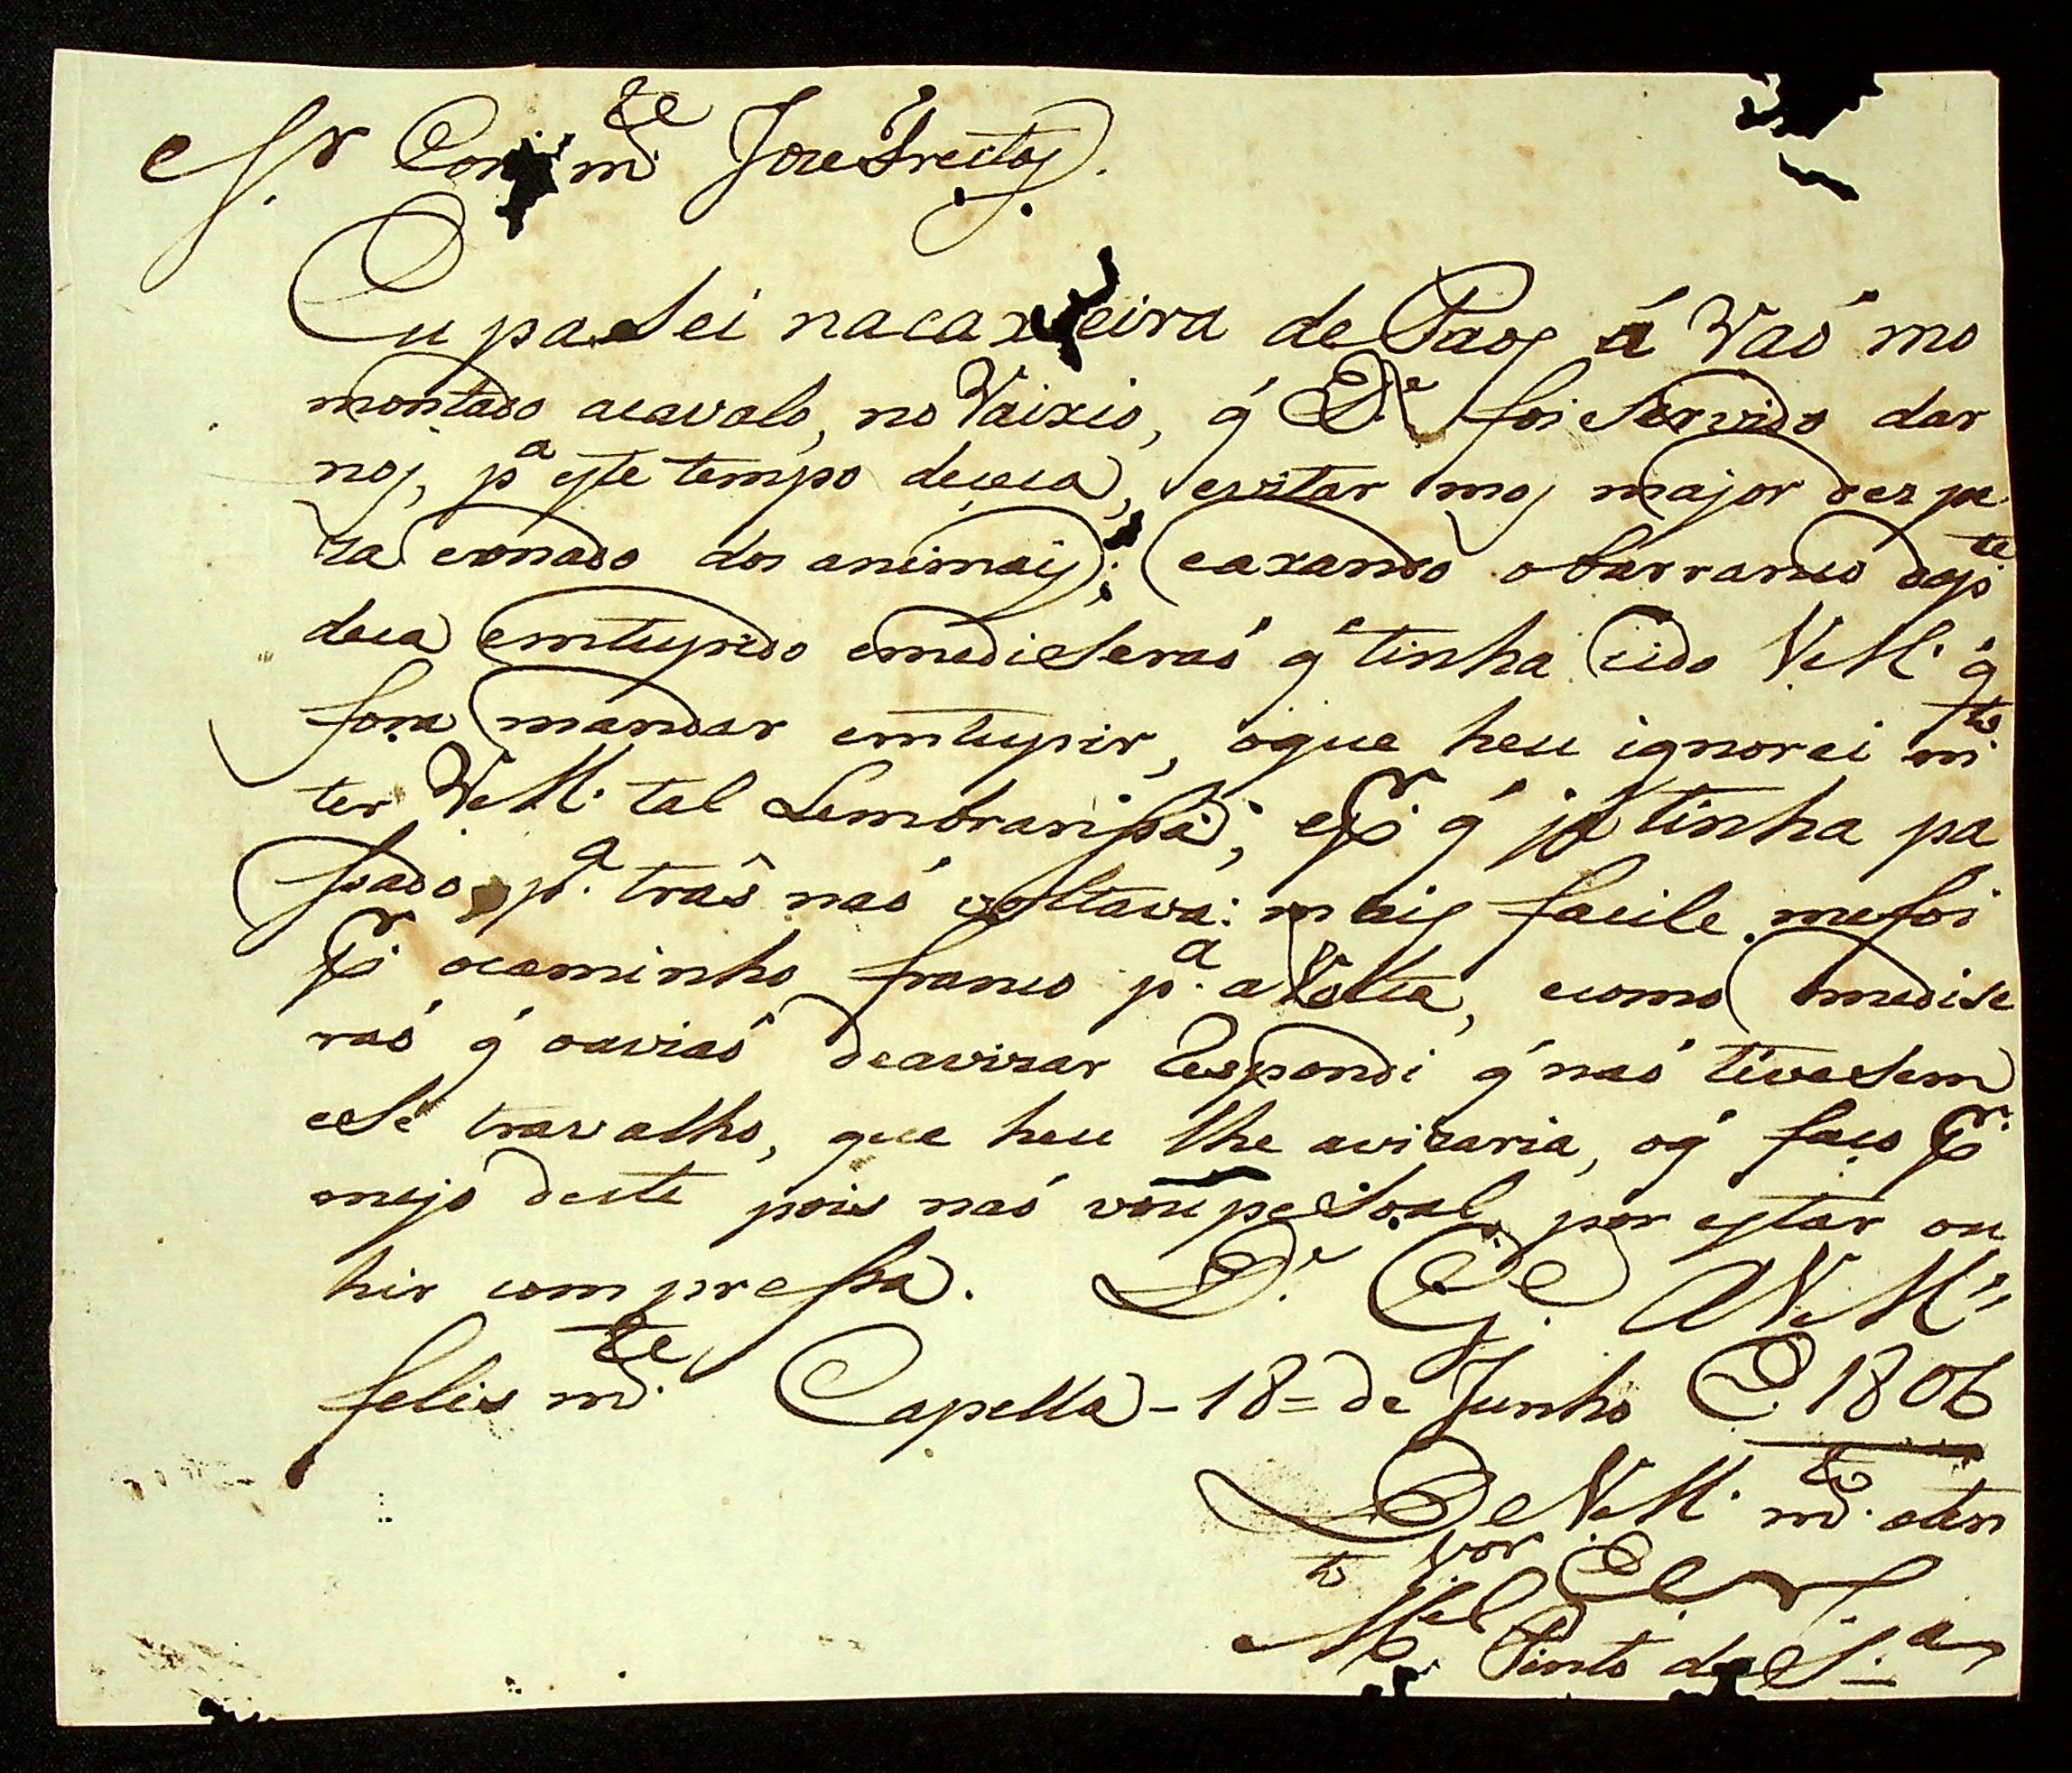 Sr Com md.te Jose Freitas.
Eu paSei na caxoeira de Paos á Vaó mo
montado acavalo, no Vaixio, q̃ D.s foi Servido dar
nos, p.a este tempo dececa, evitar mos major des pe
za eonado dos animais; eaxando obarranco dap.te
deca emtupido emediSeraó q̃ tinha sido VM. q̃
fora mandar emtupir, oque heu ignorei m.to
ter VM. tal Lembransa; epr q̃ já tinha pa
sado p.a trás naó voltava: mais facile mefoi
pr ocaminho franco p.a a Volta, ecomo medise
raó q̃ aviaó deavizar Respondi q̃ naó tiveSem
eSe travalho, que heu lhe avizaria, oq̃ faço pr
mejo deste pois naó vou peSoal, por estar ou
hir com pressa. D.s G.e a VM.ce
felis md.te Capella - 18 = de Junho D 1806
De VM. md.to aten
to Vor C.r
M.el Pinto de S.a